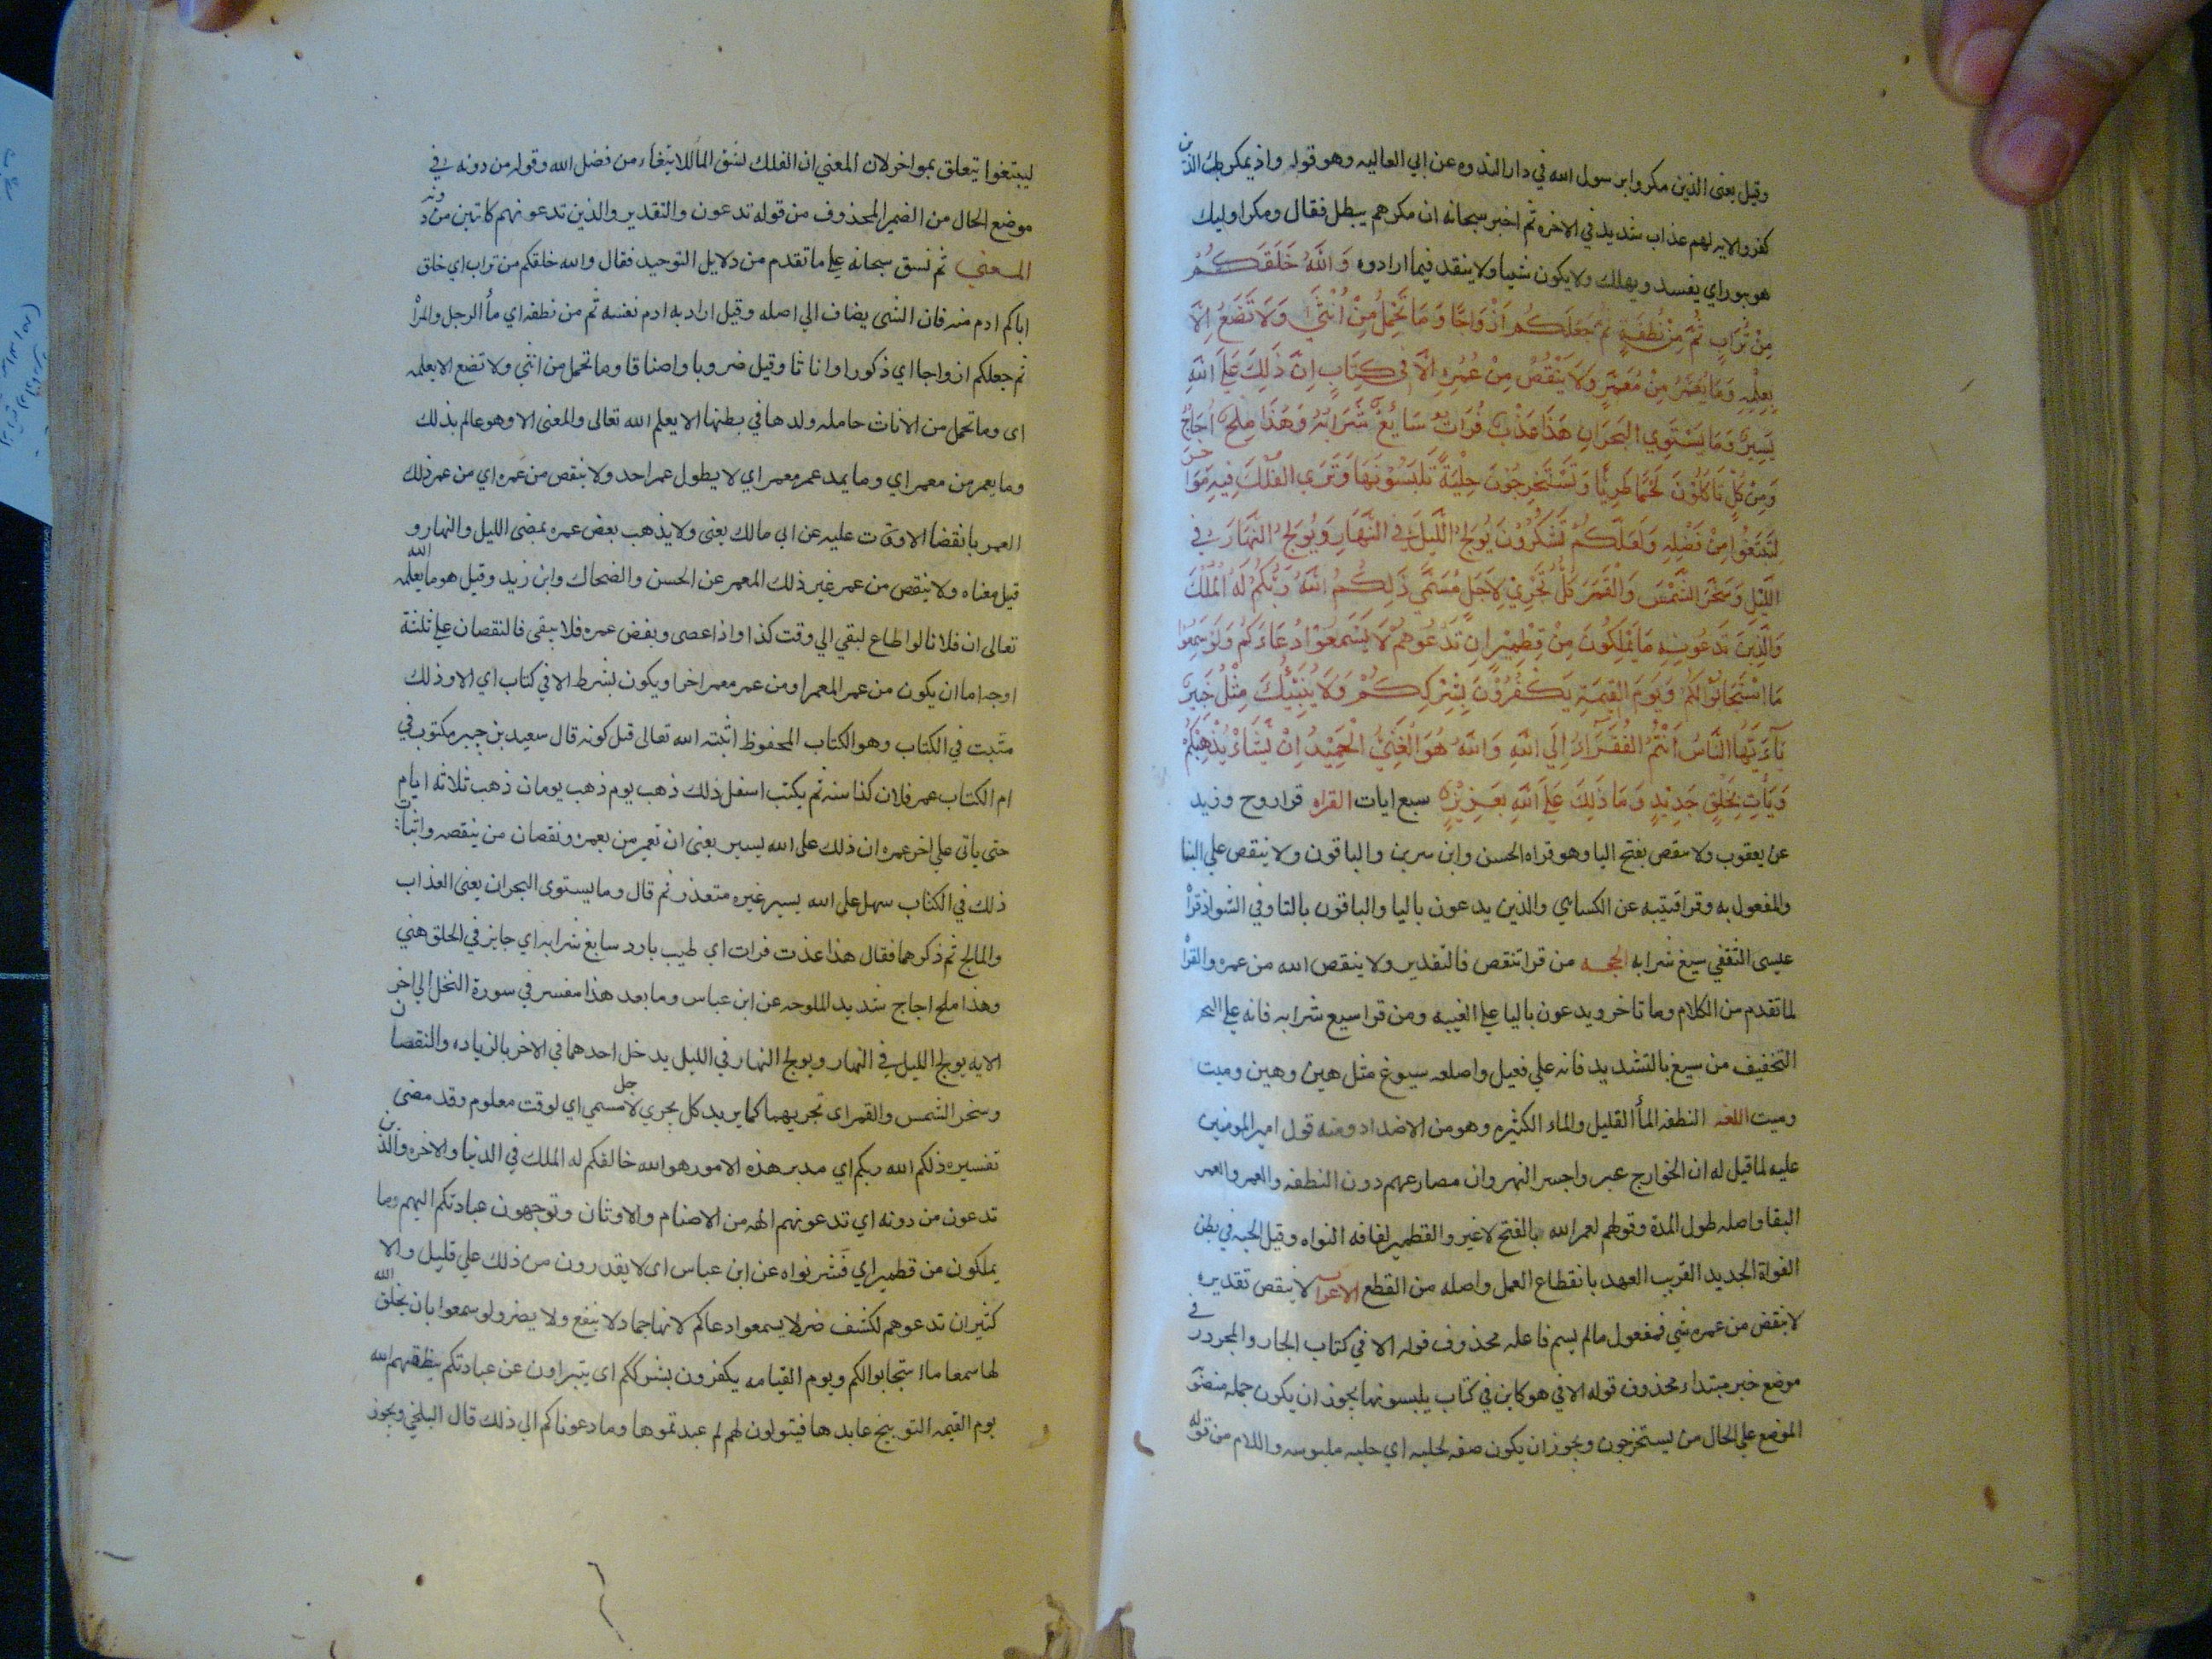 وقيل يعنى الذين مكروا برسول الله في دار الندوه عن ابي العاليه وهو قوله واذ يمكر بك الذين
كفروا الايه لهم عذاب شديد في الاخره ثم اخبر سبحانه ان مكرهم يبطل فقال ومكر اوليك
هو يبور اي يفسد ويهلك ولا يكون شيا ولا ينفد فيما ارادوه وَاللهُ خَلَقَكُمْ
مِنْ تُرَابٍ ثُمَّ مِنْ نُطْفَةٍ ثُمَّ جَعَلَكُمْ اَزْوَاجًا وَمَا تَحْمِلُ مِنْ اُنْثَى وَلَا تَضَعُ اِلَّا
بِعِلْمِهِ وَمَا يُعَمَّرُ مِنْ مُعَمَّرٍ وَلَا يُنْقَصُ مِنْ عُمُرِهِ اِلَّا فِي كِتَابٍ اِنَّ ذَلِكَ عَلَى اللهِ
يَسِيرٌ وَمَا يَسْتَوِي البَحْرَانِ هَذَا عَذْبٌ فُرَاتٌ سَايِغٌ شَرَابُهُ وَهَذَا مِلْحٌ اُجَاجٌ
وَمِنْ كُلٍّ تَاكُلُوْنَ لَحْمًا طَرِيًّا وَتَسْتَخْرِجُوْنَ حِلْيَةً تَلْبَسُوْنَهَا وَتَرَى الفُلْكَ فِيهِ مَوَاخِرَ
لِتَبْتَغُوْا مِنْ فَضْلِهِ وَلَعَلَّكُمْ تَشْكُرُوْنَ يُوْلِجُ اللَّيْلَ فِي النَّهَارِ وَيُوْلِجُ النَّهَارَ فِي
اللَّيْلِ وَسَخَّرَ الشَّمْسَ وَالْقَمَرَ كُلٌّ يَجْرِيْ لِاَجَلٍ مُسَمًّى ذَلِكُمُ اللهُ رَبُّكُمْ لَهُ الْمُلْكُ
وَالَّذِينَ تَدْعُونَ مِنْ دُونِهِ مَا يَمْلِكُوْنَ مِنْ قِطْمِيْرٍ اِنْ تَدْعُوهُمْ لَا يَسْمَعُوْا دُعَاءَكُمْ وَلَوْ سَمِعُوْا
مَا اسْتَجَابُوْا لَكُمْ وَيَوْمَ الْقِيمَةِ يَكْفُرُوْنَ بِشِرْكِكُمْ وَلَا يُنَبِّئُكَ مِثْلُ خَبِيْرٍ
يَآ اَيُّهَا النَّاسُ اَنْتُمُ الفُقَرَآءُ اِلَى اللهِ وَاللهُ هُوَ الْغَنِيُّ الْحَمِيْدُ اِنْ يَّشَاْ يُذْهِبْكُمْ
وَيَأْتِ بِخَلْقٍ جَدِيْدٍ وَمَا ذَلِكَ عَلَى اللهِ بِعَزِيْزٍ سبع ايات القراه قرا روح وزيد
عن يعقوب ولا ينقص بفتح اليا وهو قراه الحسن وابن سرين والباقون ولا ينقص علي البنا
والمفعول به وقرا قتيبه عن الكسائي والذين يدعون باليا والباقون بالتا وفي الشواذ قرأ
عيسى الثقفي سيغ شرابه الحجه من قرا تنقص فالتقدير ولا ينقص الله من عمره والقرا
لما تقدم من الكلام وما تاخر ويدعون باليا علي الغيبه ومن قرا سيع شرابه فانه علي النحر
التخفيف من سيغ بالتشديد فانه علي فعيل واصله سيوغ مثل هين وهين وميت
وميت اللغه النطفه المأ القليل والماء الكثير وهو من الاضداد ومنه قول امير المومنين
عليه لما قيل له ان الخوارج عبروا جسر النهروان مصارعهم دون النطفه والعمر والعمر
البقا واصله طول المدة وقولهم لعمر الله بالفتح لا غير والقطمير لفافه النواه وقيل الحبه في بطن
النواة الجديد القريب العهد بانقطاع العمل واصله من القطع الاعراب لا ينقص تقديره
لا ينقص من عمره شي فمفعول ما لم يسم فاعله محذوف قوله الا في كتاب الجار والمجرور في
موضع خبر مبتداء محذوف قوله الا في هو كاين في كتاب يلبسونها يجوز ان يكون جمله منصوب
الموضع علي الحال من يستخرجون ويجوز ان يكون صفه لحليه اي حليه ملبوسه واللام من قوله
ليبتغوا يتعلق بمواخر لان المعني ان الفلك تشق المأ للابتغاء من فضل الله وقوله من دونه في
موضع الحال من الضمير المحذوف من قوله تدعون والتقدير والذين تدعونهم كائنين من دونه
المعنى ثم نسق سبحانه علي ما تقدم من دلايل التوحيد فقال والله خلقكم من تراب اي خلق
اباكم ادم منه فان الشي يضاف الي اصله وقيل اراد به ادم نفسه ثم من نطفه اي مأ الرجل والمرأ
ثم جعلكم ازواجا اي ذكورا واناثا وقيل ضروبا واصنافا وما تحمل من انثي ولا تضع الا بعلمه
اى وما تحمل من الاناث حامله ولدها في بطنها الا يعلم الله تعالى والمعنى الا وهو عالم بذلك
وما يعمر من معمر اي وما يمد عمر معمر اي لا يطول عمر احد ولا ينقص من عمره اي من عمر ذلك
العمر بانقضا الاوقات عليه عن ابي مالك يعنى ولا يذهب بعض عمره بمضي الليل والنهار و
قيل معناه ولا ينقص من عمر غير ذلك المعمر عن الحسن والضحاك وابن زيد وقيل هو ما يعلمه الله
تعالى ان فلانا لو اطاع لبقي الي وقت كذا واذا عصى وبغض عمره فلا يبقى فالنقصان علي ثلثة
اوجه اما ان يكون من عمر المعمر او من عمر معمر اخر او يكون بشرط الا في كتاب اي الا وذلك
مثبت في الكتاب وهو الكتاب المحفوظ اثبته الله تعالى قبل كونه قال سعيد بن جبير مكتوب في
ام الكتاب عمر فلان كذا سنه ثم يكتب اسفل ذلك ذهب يوم ذهب يومان ذهب ثلاثه ايام
حتى ياتى علي اخر عمره ان ذلك على الله يسير يعنى ان تعمير من يعمره ونقصان من ينقصه واثبات
ذلك في الكتاب سهل على الله يسير غيره متعذر ثم قال وما يستوى البحران يعنى العذاب
والمالح ثم ذكرهما فقال هذا عذب فرات اي طيب بارد سايغ شرابه اي جايز في الحلق هني
وهذا ملح اجاج شديد الملوحه عن ابن عباس وما بعد هذا مفسر في سورة النحل الي اخر
الايه يولج الليل في النهار ويولج النهار في الليل يدخل احدهما في الاخر بالزياده والنقصان
وسخر الشمس والقمر اى تجريهما كما يريد كل يجري لاجل مسمي اي لوقت معلوم وقد مضى
تفسيره ذلكم الله ربكم اي مدبر هذه الامور هو الله خالقكم له الملك في الدنيا والاخره والذين
تدعون من دونه اي تدعونهم الهه من الاصنام والاوثان وتوجهون عبادتكم اليهم وما
يملكون من قطمير اي قشر نواه عن ابن عباس اى لا يقدرون من ذلك علي قليل والا
كثير ان تدعوهم لكشف ضر لا يسمعوا دعاكم لانها جماد لا ينفع ولا يضر ولو سمعوا بان يخلق الله
لها سمعا ما استجابوا لكم ويوم القيامه يكفرون بشرككم اى يتبراون عن عبادتكم ينطقهم الله
يوم القيمه التوبيخ عابدها فيتولون لهم لم عبدتموها وما دعوناكم الي ذلك قال البلخي ويجوز